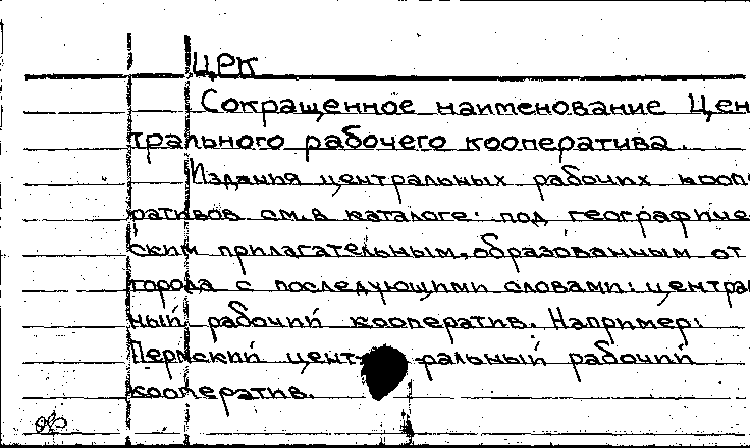 ЦРК
Сокращенное наименование Цен
трального рабочего кооператива.
Издания центральных рабочих кооп
ративов см. в каталоге: под географиче
ским прилагательным, образованным от
города с последующими словами: центра
ный рабочий кооператив. Например:
Пермский цент-ральный рабочий
кооператив.